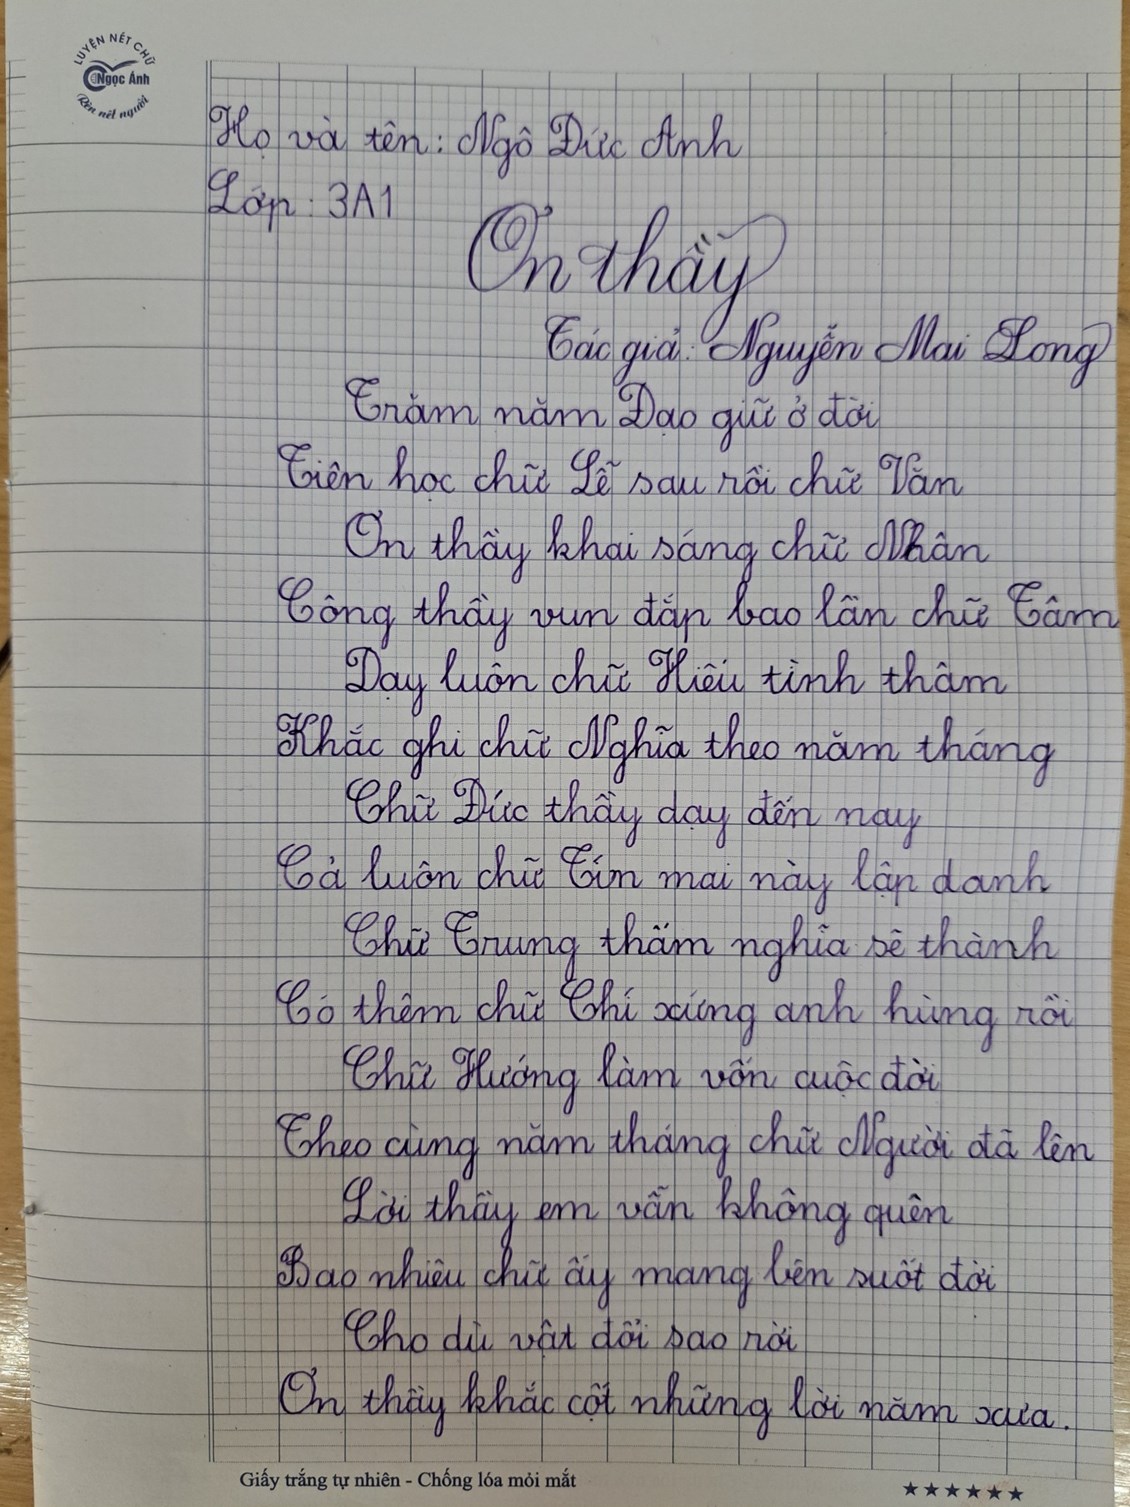 LUYỆN NÉT CHỮ
Ngọc Ánh
Rèn nết người
Họ và tên: Ngô Đức Anh
Lớp: 3A1
Ơn thầy
Tác giả: Nguyễn Mai Long
Trăm năm Đạo giữ ở đời
Tiên học chữ Lễ sau rồi chữ Văn
Ơn thầy khai sáng chữ Nhân
Công thầy vun đắp bao lần chữ Tâm
Dạy luôn chữ Hiếu tình thâm
Khắc ghi chữ Nghĩa theo năm tháng
Chữ Đức thầy dạy đến nay
Cả luôn chữ Tín mai này lập danh
Chữ Trung thấm nghĩa sẽ thành
Có thêm chữ Chí xứng anh hùng rồi
Chữ Hướng làm vốn cuộc đời
Theo cùng năm tháng chữ Người đã lên
Lời thầy em vẫn không quên
Bao nhiêu chữ ấy mang bên suốt đời
Cho dù vật đổi sao rời
Ơn thầy khắc cột những lời năm xưa.
Giấy trắng tự nhiên - Chống lóa mỏi mắt
★★★★★★